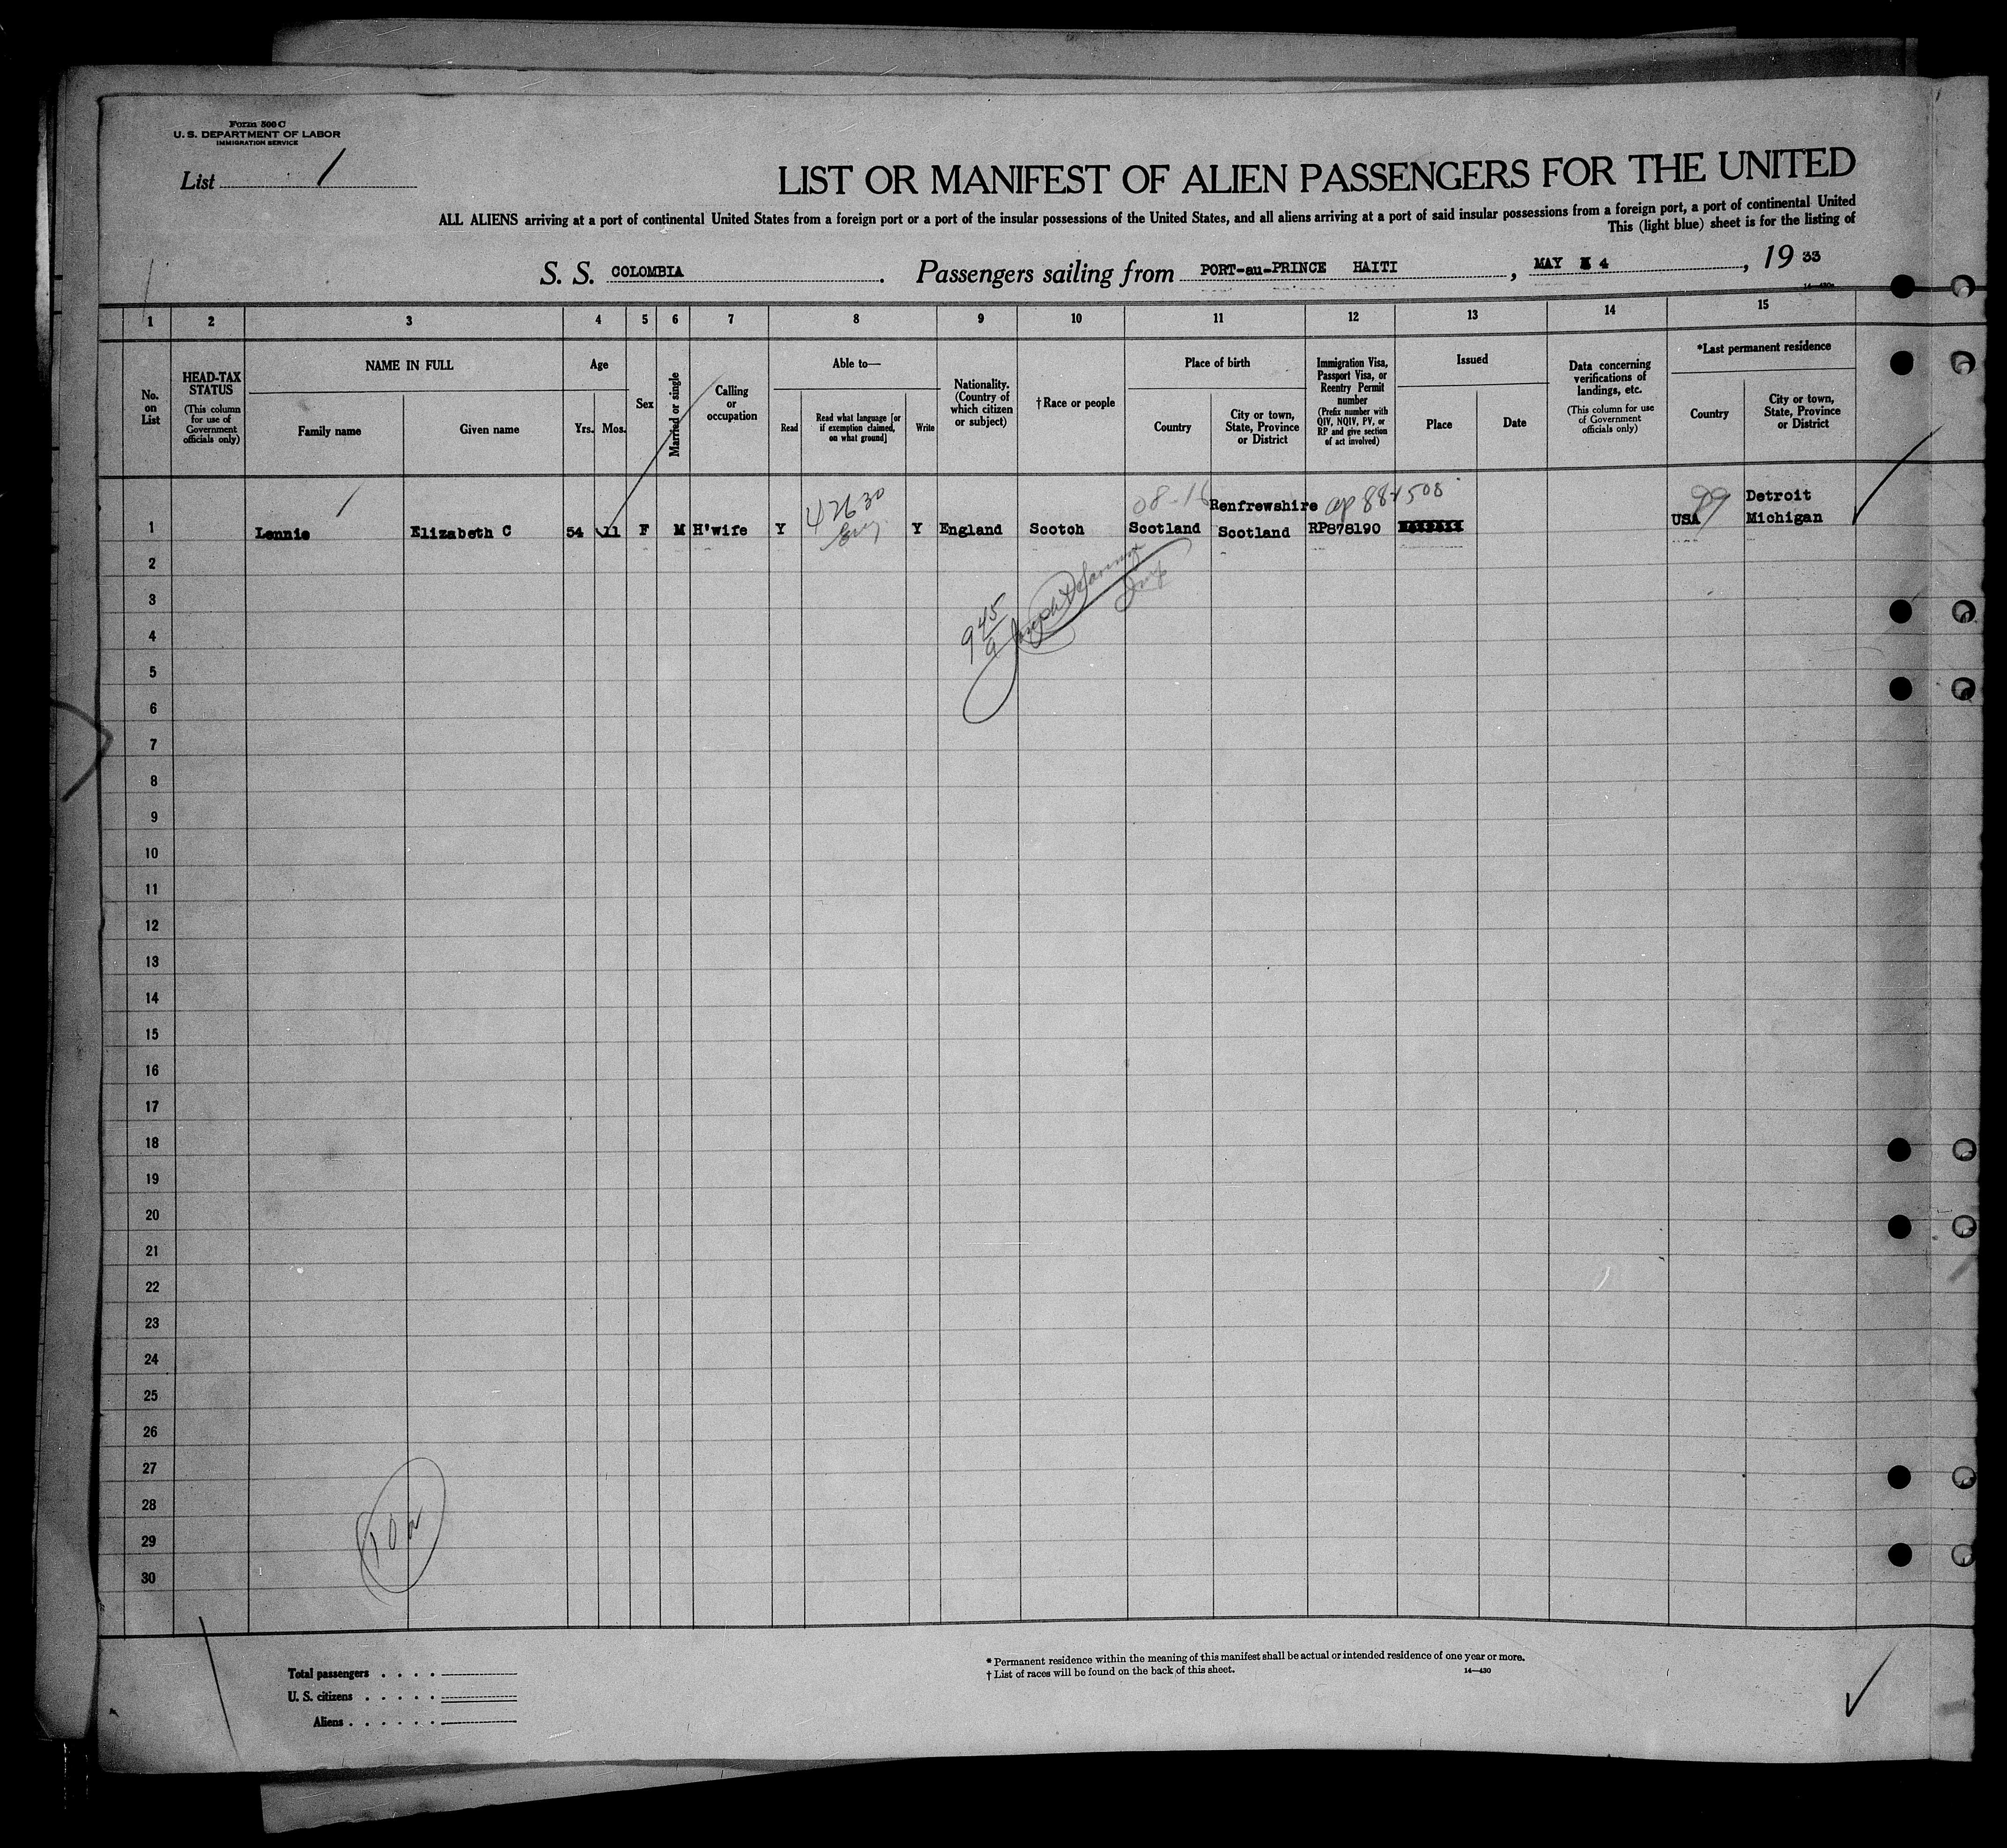 Form 500 C
U. S. DEPARTMENT OF LABOR
IMMIGRATION SERVICE
List 1
LIST OR MANIFEST OF ALIEN PASSENGERS FOR THE UNITED
ALL ALIENS arriving at a port of continental United States from a foreign port or a port of the insular possessions of the United States, and all aliens arriving at a port of said insular possessions from a foreign port, a port of continental United
This (light blue) sheet is for the listing of
S. S. COLOMBIA. Passengers sailing from PORT-au-PRINCE HAITI, MAY 4, 19 33
1 2 3 4 5 6 7 8 9 10 11 12 13 14 15
No. on List
HEAD-TAX STATUS
(This column for use of Government officials only)
NAME IN FULL
Family name
Given name
Age
Yrs. Mos.
Sex
Married or single
Calling or occupation
Able to—
Read
Read what language [or if exemption claimed, on what ground]
Write
Nationality. (Country of which citizen or subject)
† Race or people
Place of birth
Country
City or town, State, Province or District
Immigration Visa, Passport Visa, or Reentry Permit number
(Prefix number with QIV, NQIV, PV, or RP and give section of act involved)
Issued
Place
Date
Data concerning verifications of landings, etc.
(This column for use of Government officials only)
*Last permanent residence
Country
City or town, State, Province or District
42630
08-16
Renfrewshire
Detroit
99
1 Lennie Elizabeth C 54 11 F M H'wife Y Eng Y England Scotch Scotland Scotland RP878190 USA Michigan
2
3
4
5
6
7
8
9
10
11
12
13
14
15
16
17
18
19
20
21
22
23
24
25
26
27
28
29
30
Total passengers
U. S. citizens
Aliens
* Permanent residence within the meaning of this manifest shall be actual or intended residence of one year or more.
† List of races will be found on the back of this sheet.
14—430